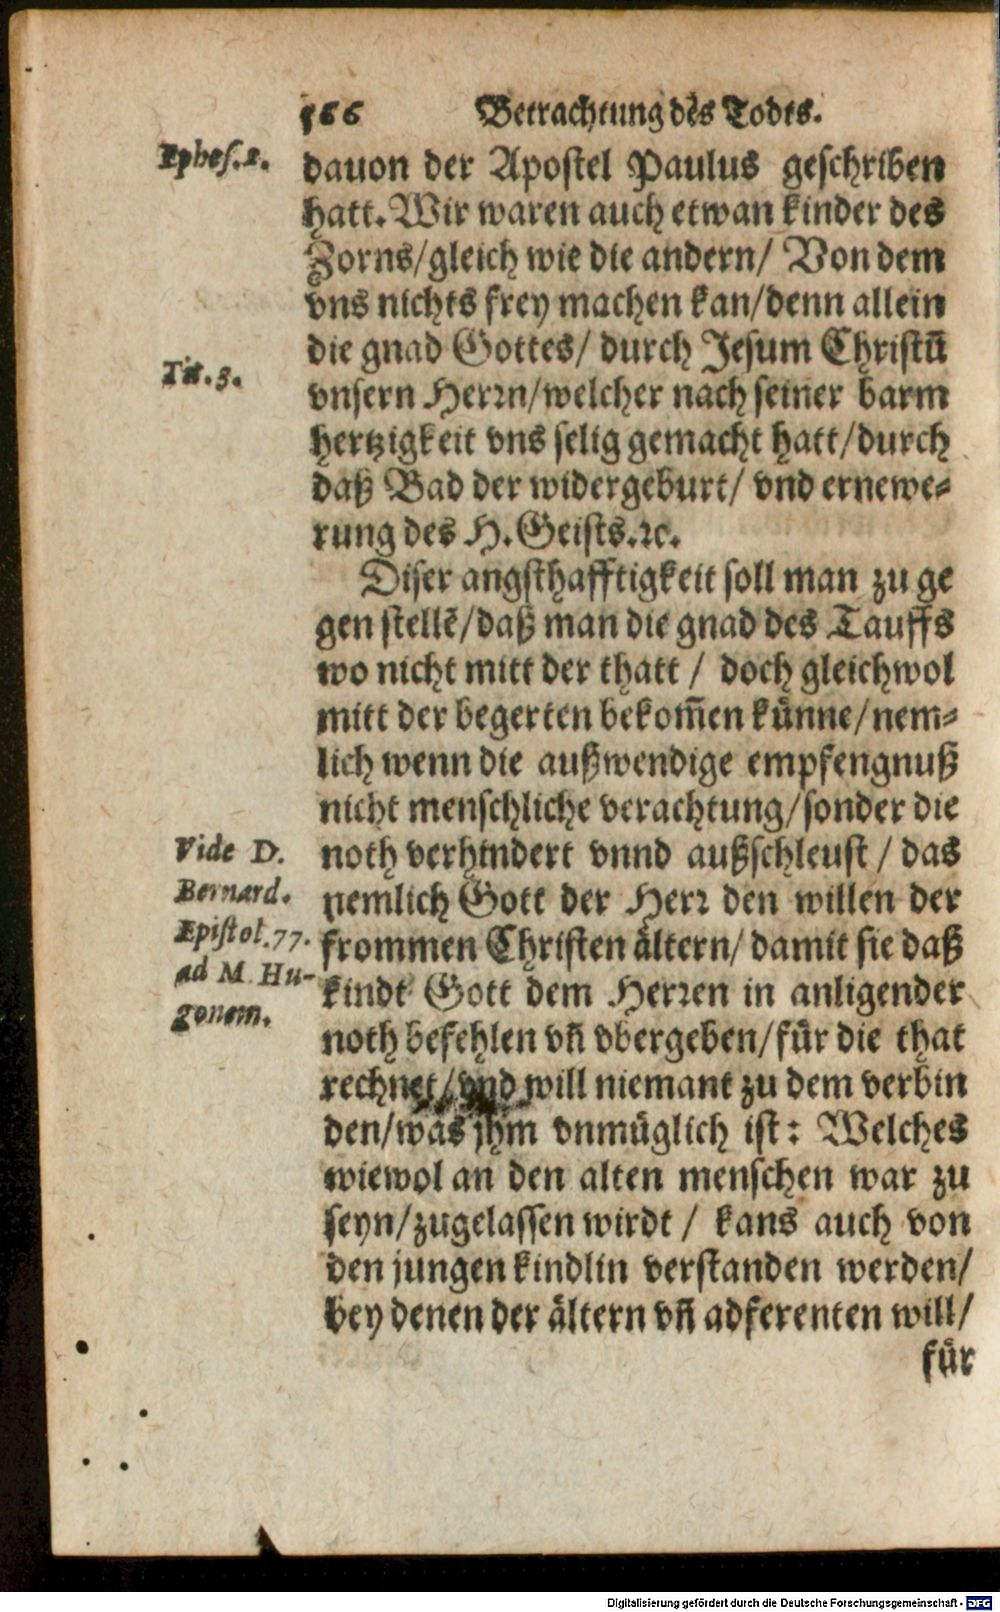 166 Betrachtung des Todts.
Ephes. 2.
dauon der Apostel Paulus geschriben
hatt. Wir waren auch etwan kinder des
Zorns/gleich wie die andern/ Von dem
vns nichts frey machen kan/denn allein
die gnad Gottes/ durch Jesum Christū
Tit. 3.
vnsern Herꝛn/welcher nach seiner barm
hertzigkeit vns selig gemacht hatt/durch
daß Bad der widergeburt/ vnd ernewe⸗
rung des H. Geists.ꝛc.
Diser angsthafftigkeit soll man zu ge
gen stellē/daß man die gnad des Tauffs
wo nicht mitt der thatt / doch gleichwol
mitt der begerten bekom̄en künne/nem⸗
lich wenn die außwendige empfengnuß
nicht menschliche verachtung/sonder die
Vide D.
Bernard.
Epistol. 77.
ad M. Hu-
gonem.
noth verhindert vnnd außschleust / das
nemlich Gott der Herꝛ den willen der
frommen Christen ältern/ damit sie daß
kindt Gott dem Herꝛen in anligender
noth befehlen vñ vbergeben/für die that
rechnet/vnd will niemant zu dem verbin
den/was jhm vnmüglich ist: Welches
wiewol an den alten menschen war zu
seyn/zugelassen wirdt / kans auch von
den jungen kindlin verstanden werden/
bey denen der ältern vñ adferenten will/
für
Digitalisierung gefördert durch die Deutsche Forschungsgemeinschaft - DFG